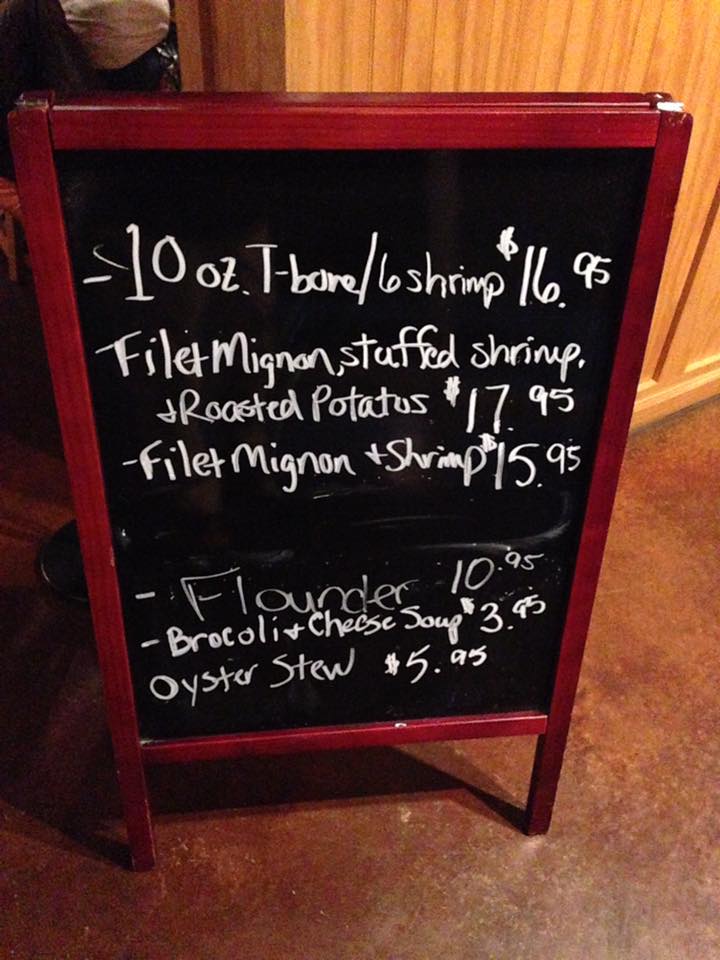 - 10 oz. T-bone/6 shrimp $16.95
Filet Mignon, stuffed shrimp,
+ Roasted Potatos $17.95
- Filet Mignon + Shrimp $15.95
- Flounder 10.95
- Brocoli + Cheese Soup $3.95
Oyster Stew $5.95